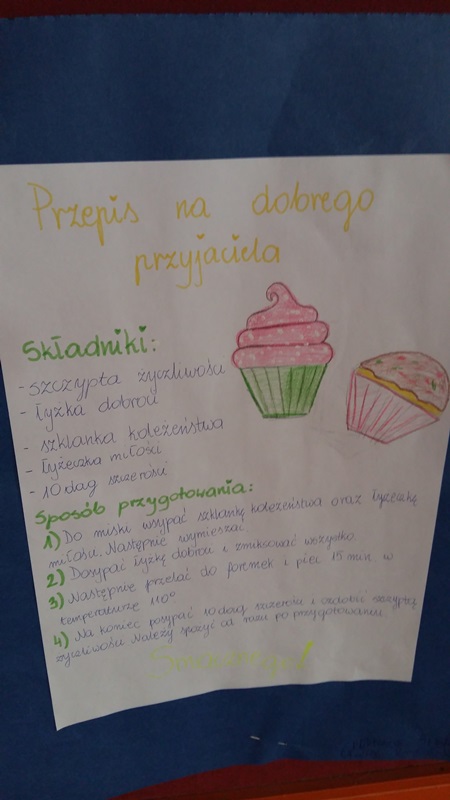 Przepis na dobrego
przyjaciela
Składniki:
- szczypta życzliwości
- łyżka dobroci
- szklanka koleżeństwa
- łyżeczka miłości
- 10 dag szczerości
Sposób przygotowania:
1) Do miski wsypać szklankę koleżeństwa oraz łyżeczkę
miłości. Następnie wymieszać.
2) Dosypać łyżkę dobroci i zmiksować wszystko.
3) Następnie przelać do foremek i piec 15 min w
temperaturze 110°
4) Na koniec posypać 10 dag szczerości i ozdobić szczyptą
życzliwości. Należy spożyć od razu po przygotowaniu.
Smacznego!